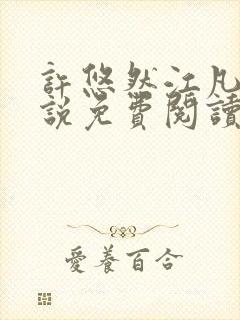 許悠然江凡
說免費閱讀
愛養百合